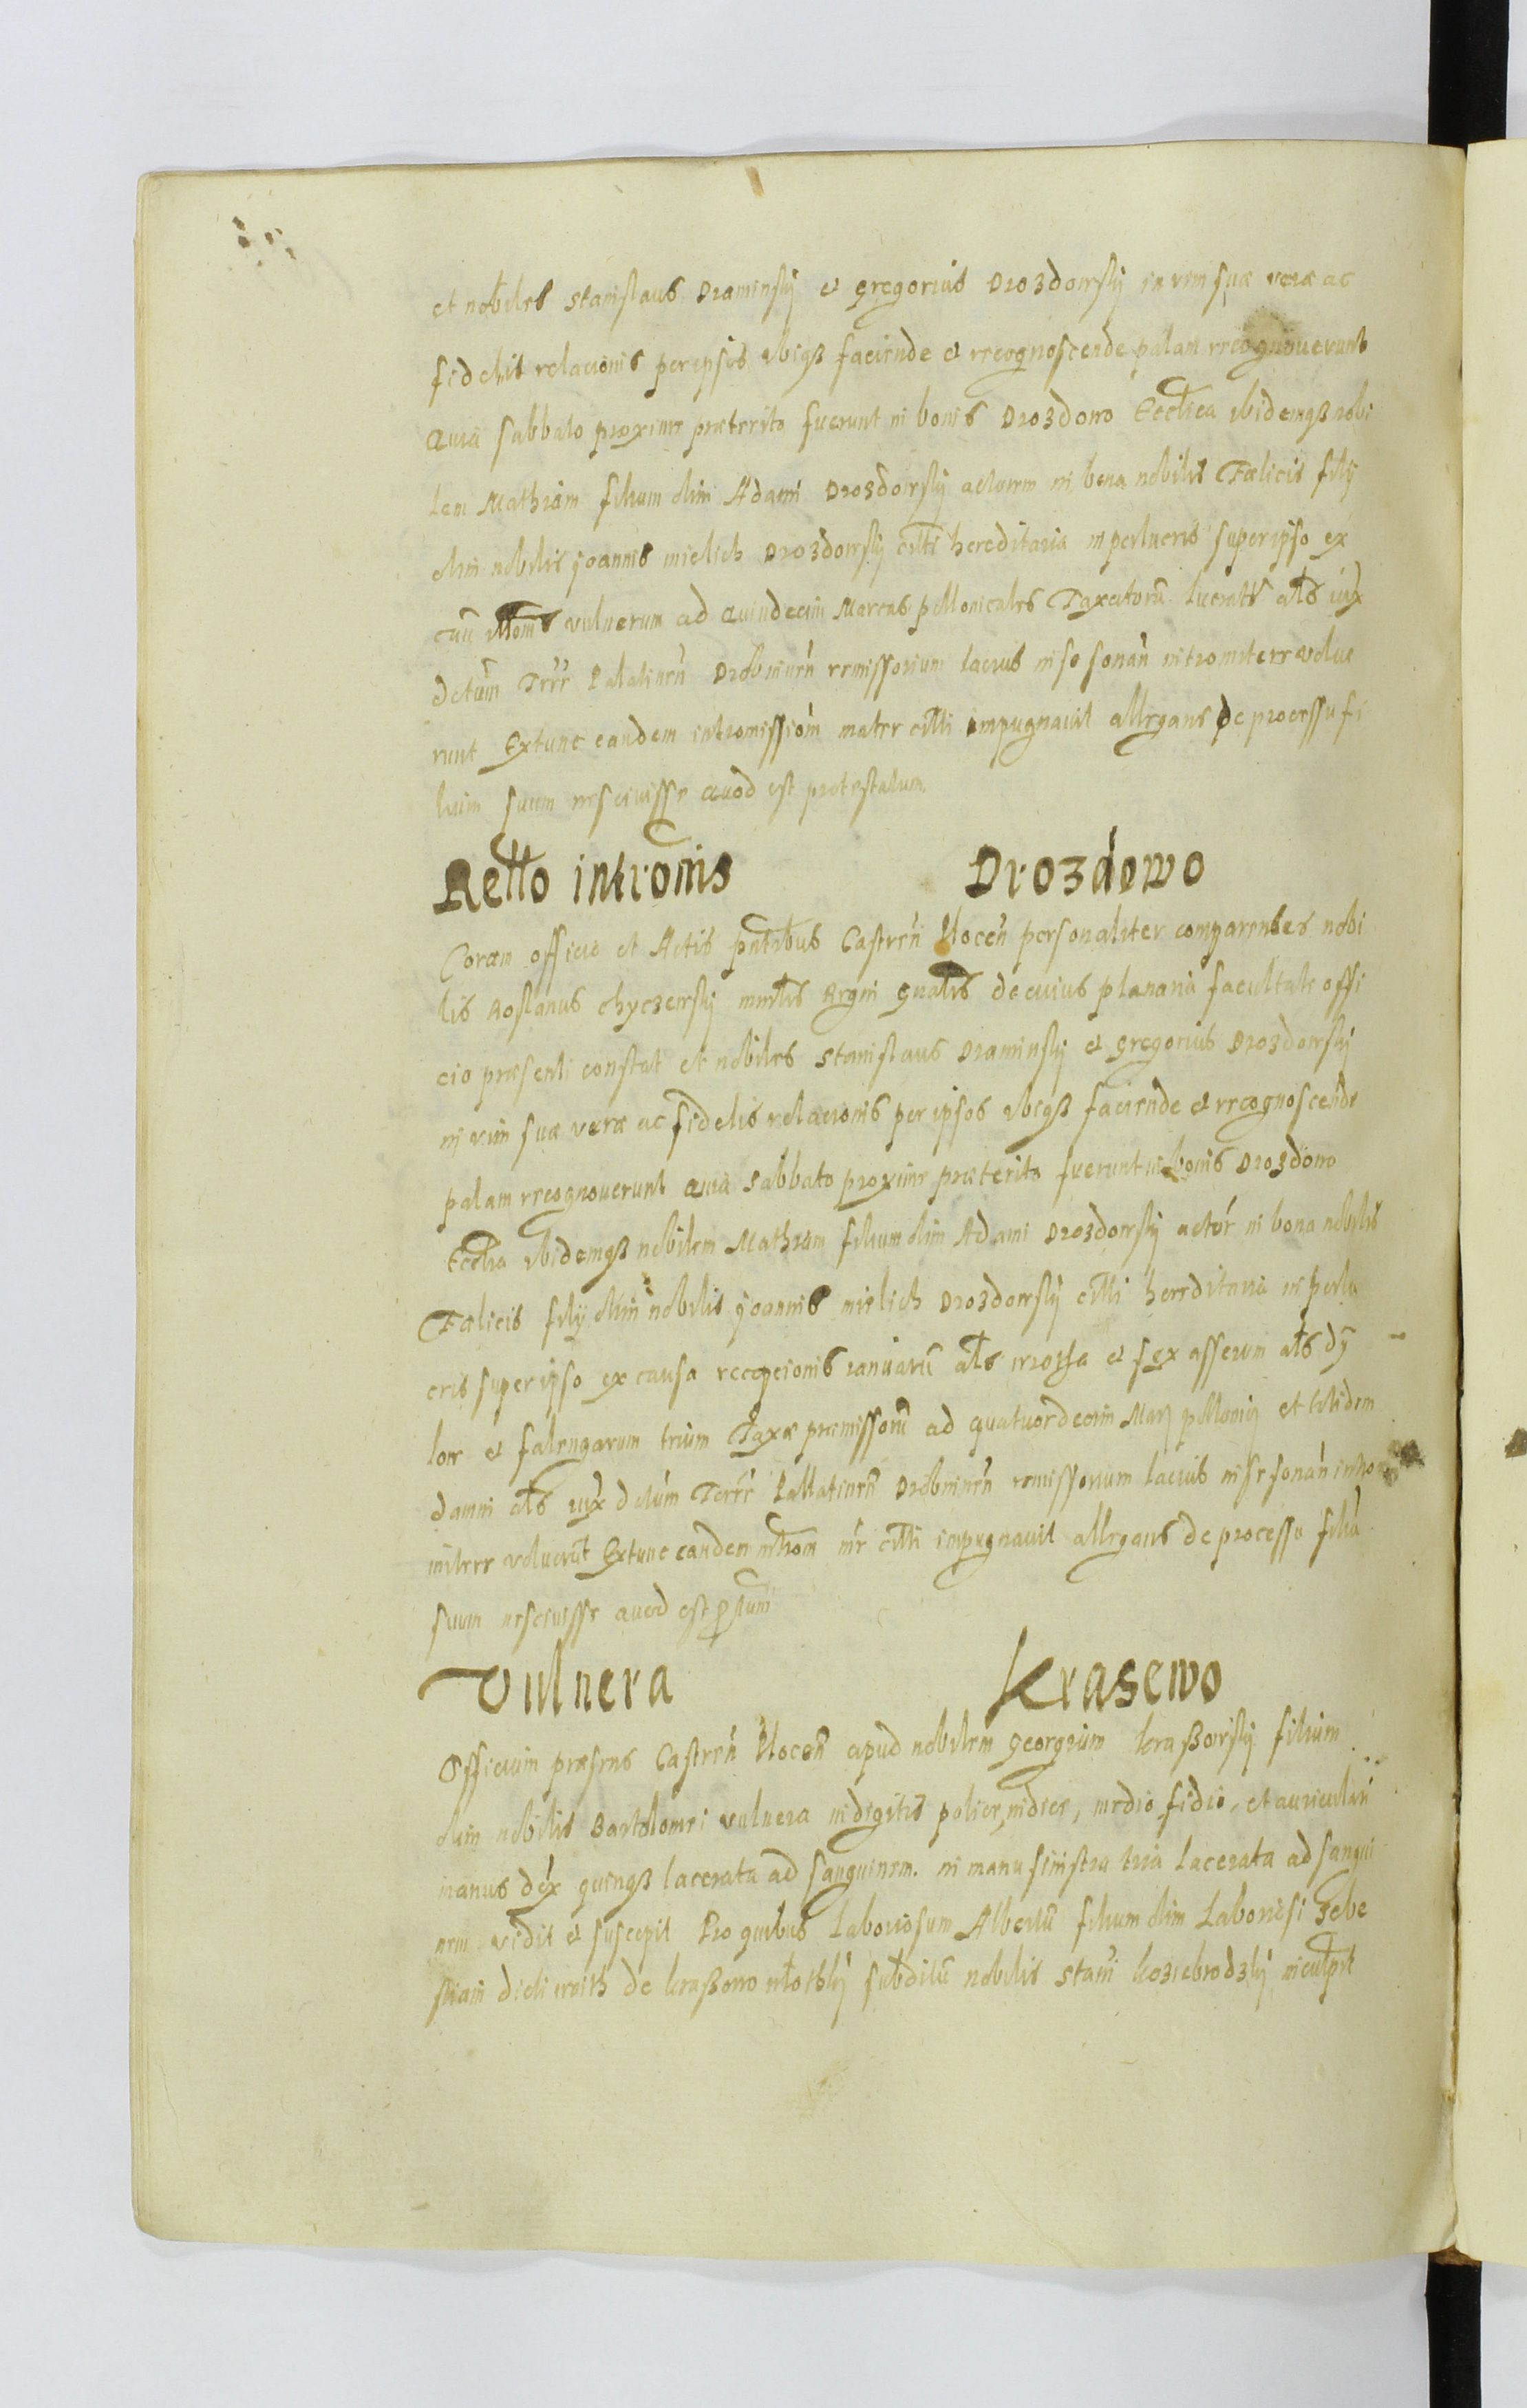 et nobiles Stanislaus Draminsky et Gregorius Drozdowsky in vim suæ veræ ac
fidelis relacionis per ipsos ibiqß faciende et recognoscende palam recognoverunt
Quia sabbato proxime præterito fuerunt in bonis Drozdowo Ecclîca ibidemqß nobi
lem Mathiam filium olim Adami Drozdowsky actorem in bona nobilis Fælicis filÿ
olim nobilis Joannis mielich Drozdowsky citti hereditaria in perlucris super ipso ex
cau vulnerum ad Quindecim Marcas pollonicales Taxatorũ lucratis als iux
dctum Terr Palatinen Drobninen remissorium lacius in se sonan intromittere volue
runt Extunc eandem intromissiom mater citti impugnavit allegans de processu fi
lium suum nescivisse Quod est protestatum
Retto intromis Drozdowo
Coram officio et Actis pntibus Castren Plocen personaliter comparentes nobi
lis Roslanus chyczewsky mintlis Regni gnalis de cuius planaria facultate offi
cio præsenti constat et nobiles Stanislaus Draminsky et Gregorius Drozdowsky
in vim suæ veræ ac fidelis relacionis per ipsos ibiqß faciende et recognoscende
palam recognoverunt Quia Sabbato proxime præterito fuerunt in bonis Drozdowo
Ecclica ibidemqß nobilem Mathiam filium olim Adami Drozdowsky actor in bona nobilis
Fælicis filÿ olim nobilis Joannis mielich Drozdowsky citti hereditaria in perlu
cris super ipso ex causa recepcionis ianuarũ als wrota et sex asserum als dÿ
low et falengarum trium Taxæ præmissorũ ad quatuordecim Mar pollonic et totidem
damni als iux dctum Terre Pallatinen Drobninen remissorium lacius in se sonan intro
mittere voluerũt Extunc eandem introm mr citti impugnavit allegans de processu filiũ
suum nescivisse Quod est ptum
Vulnera Krasewo
Officium præsens Castren Plocen apud nobilem Georgium kraßowsky filium
olim nobilis Bartolomei vulnera in digitis police, indice, medio, fidio, et auriculari
manus dex quinqß lacerata ad sanguinem. in manu sinistra tria lacerata ad sangui
nem vidit et suscepit Pro quibus Laboriosum Albertũ filium olim Laboriosi Sebe
stiani dicti woith de kraßowo wlothky subditũ nobilis Stani koziebrodzky inculpat